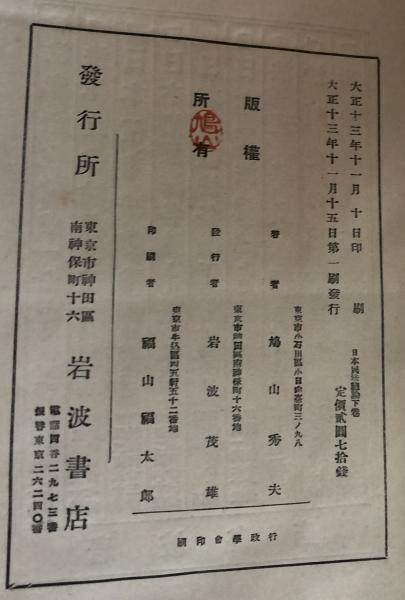 大正十三年十一月十日印刷
大正十三年十一月十五日第一刷發行
日本民法總論下卷
定價貳圓七拾錢
版權
所有
著者 鳩山秀夫
東京市小石川區小日向臺町三ノ九八
發行者 岩波茂雄
東京市神田區南神保町十六番地
印刷者 福山福太郎
發行所
東京市神田區
南神保町十六
岩波書店
電話四谷二九七三番
振替東京二六二四〇番
行政學會印刷